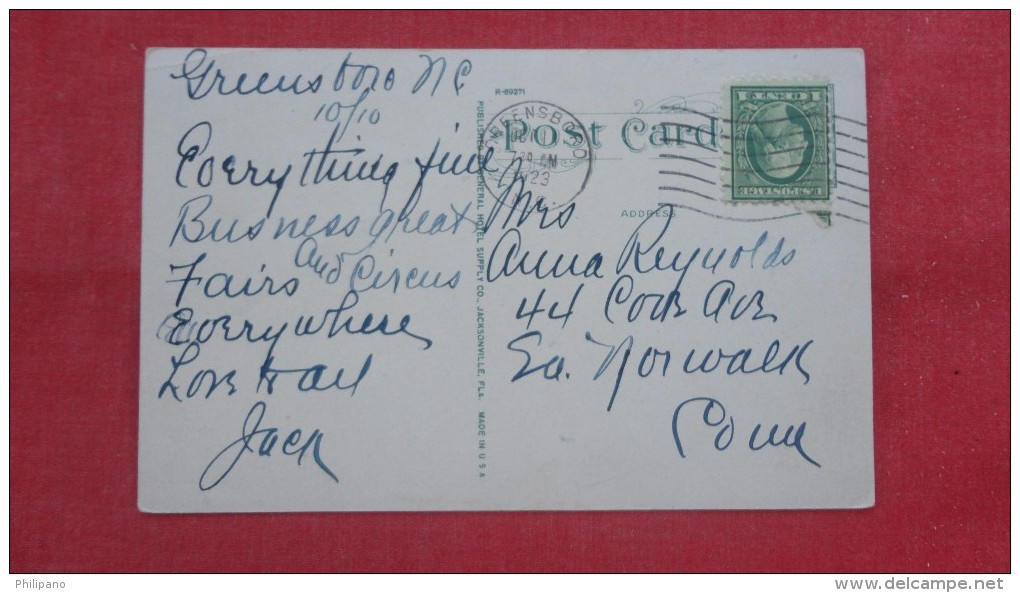 Greensboro NC
10/10
Everything fine
Business great
and Circus
Fairs
Everywhere
Love to all
Jack
R-69271
Post Card
ADDRESS
PUBLISHED BY GENERAL HOTEL SUPPLY CO., JACKSONVILLE, FLA. MADE IN U S A
GREENSBORO
AM
23
1 CENT 1
U.S. POSTAGE
Mrs
Anna Reynolds
44 Cove Ave
So. Norwalk
Conn
Philipano
www.delcampe.net